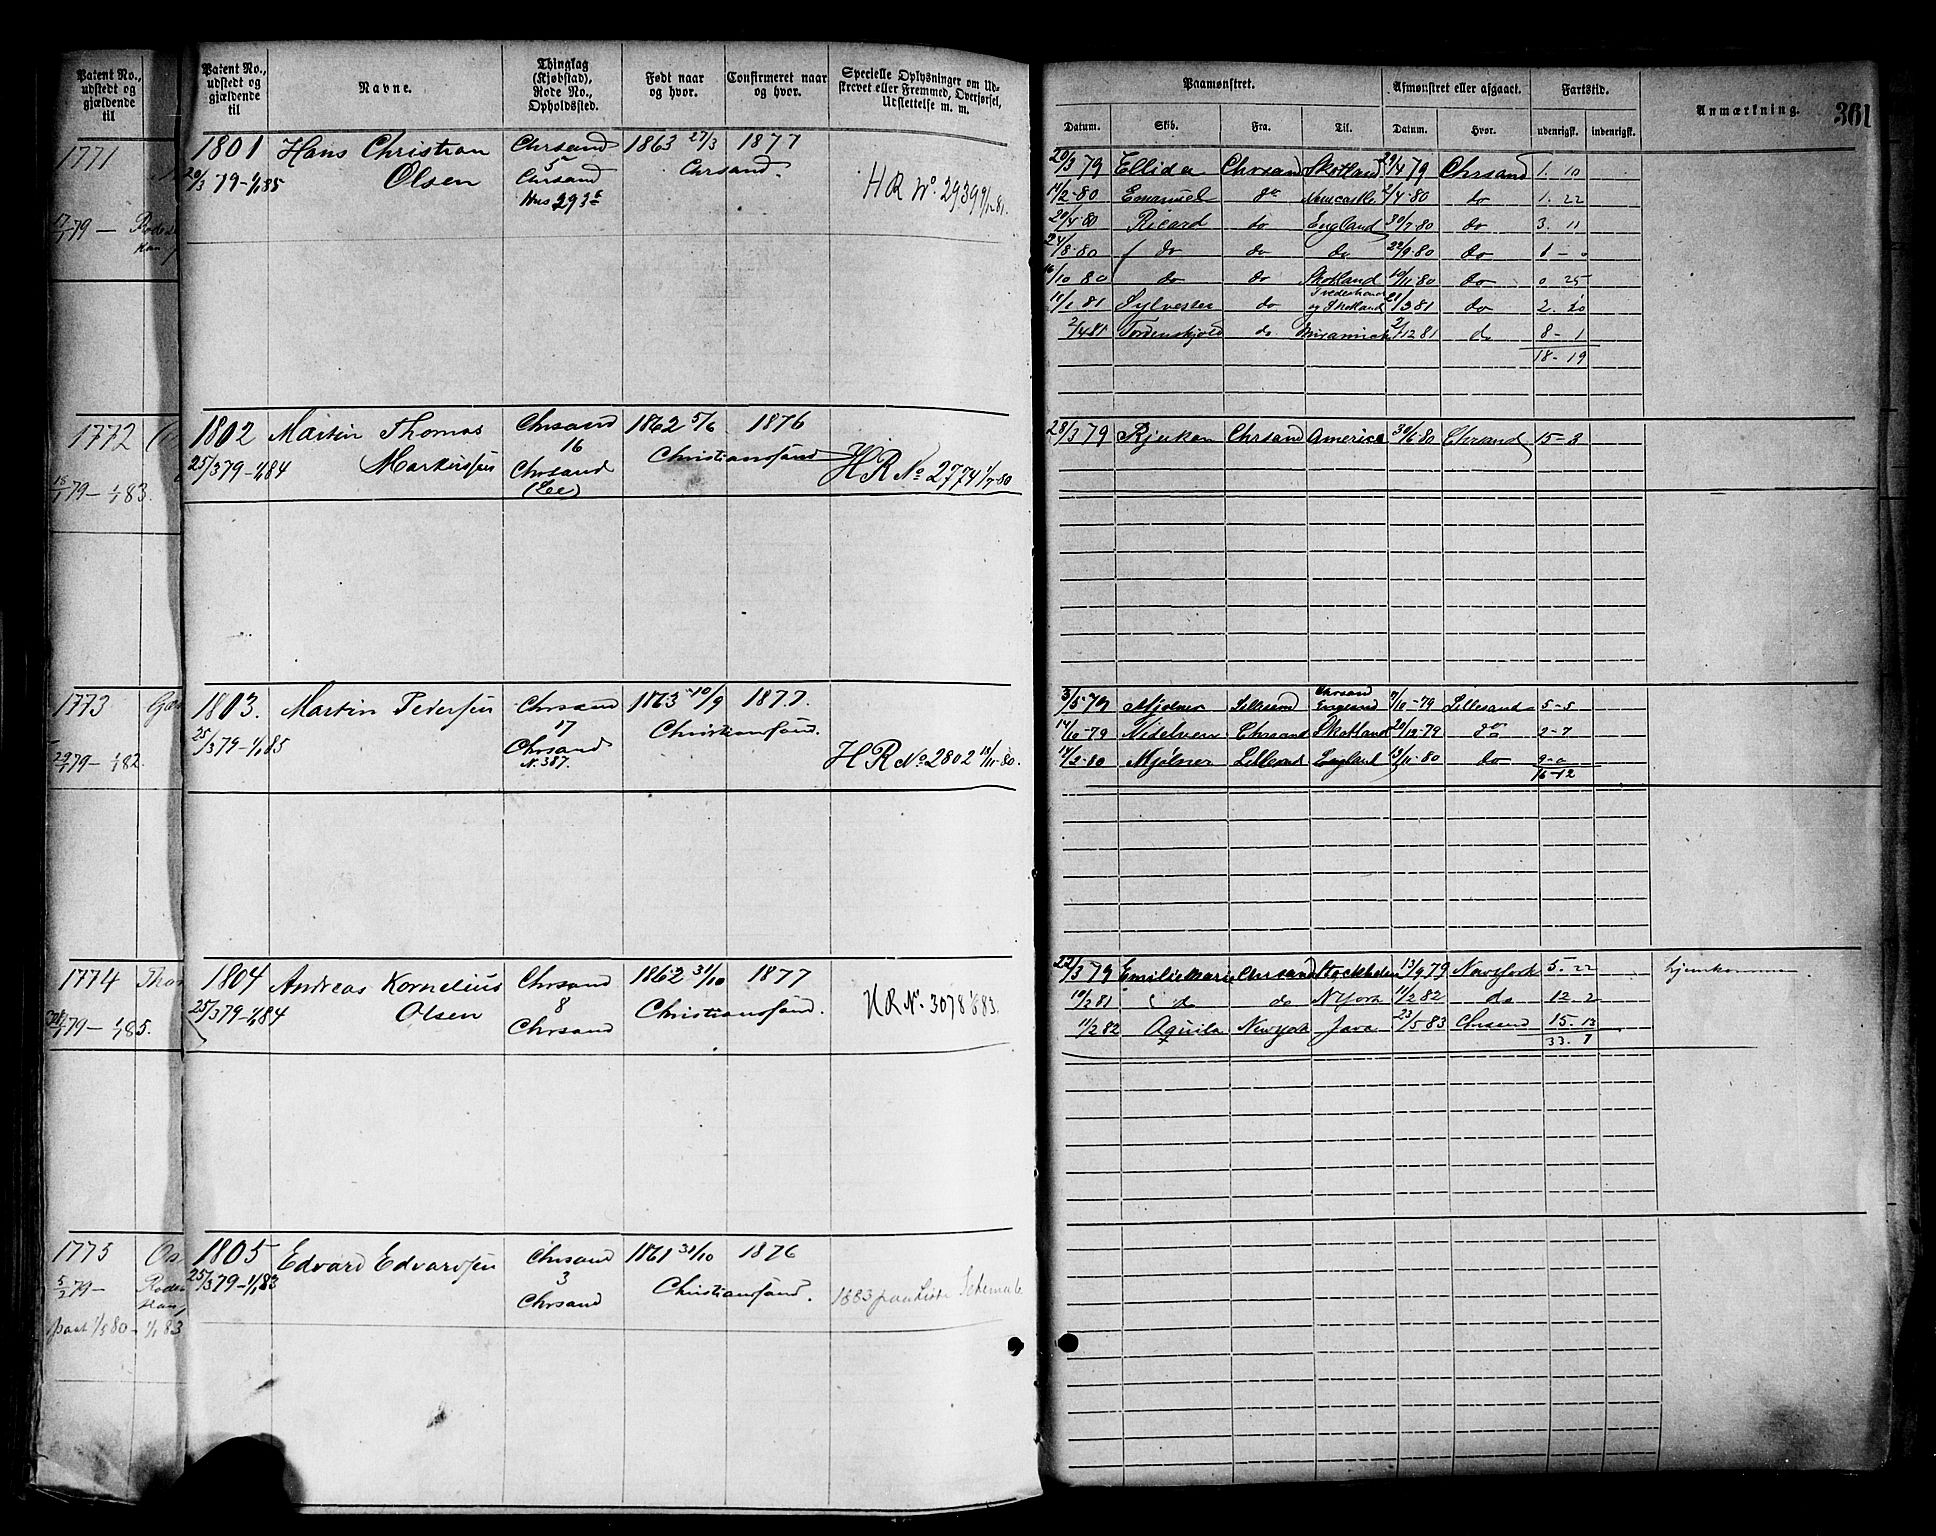 Patent No., udstedt og gjældende til
Patent No., udstedt og gjældende til
Navne.
Thinglag (Kjøbstad), Rode No., Opholdssted.
Født naar og hvor.
Confirmeret naar og hvor.
Specielle Oplysninger om Udskrevet eller Fremmed, Overførsel, Udslettelse m. m.
Paamønstret.
Afmønstret eller afgaaet.
Fartstid.
Anmærkning.
361
Datum. Skib. Fra. Til. Datum. Hvor. udenrigsk. indenrigsk.
1771
17/1 79 —
1801 Hans Christian Chrsand 1863 27/3 1877
20/3 79-1/1 85 Olsen 5 Chrsand Chrsand.
Hus 293
HR No. 2939
20/3 79 Ellida Chrsand Skotland 29/4 79 Chrsand 1. 10
14/2-80 Emanuel do Newcastle 2/4-80 do 1. 22
20/4-80 Ricard do England 30/7-80 do 3. 11
24/8-80 do do do 22/9-80 do 1 - 0
16/10 80 do do Skotland 10/11-80 do 0 25
11/1 81 Sylvester do og Skotland 21/3 81 do 2. 20
2/4 81 Tordenskjold do Miramichi 2/12 81 do 8 - 1
18 - 19
1772
18/1 79 - 1/1 83.
1802 Martin Thomas Chrsand 1862 5/6 1876
25/3 79-1/1 84 Markussen 16 Christianssand
Chrsand
HR No. 2774 1/7-80
28/3 79 Rjukan Chrsand America 30/6 80 Chrsand 15-3
1773
29/1 79 - 1/1 82.
1803. Martin Pedersen Chrsand 1863 10/9 1877.
25/3 79-1/1 85 17 Christianssand.
Chrsand
N. 387.
HR No. 2802 18/11-80.
3/5-79 Mjølner Chrsand England 7/10-79 Lillesand 5-5
14/10-79 Nidelven Chrsand Skotland 20/12-79 do 2-7
14/2-80 Mjølner Lillesand England 13/11-80 do 9-0
16-12
1774
1/1 85.
1804 Andreas Kornelius Chrsand 1862 31/10 1877
25/3 79-1/1 84 Olsen 8 Christianssand.
Chrsand
HR No. 3078
22/3 79 Emilie Marie Chrsand Stockholm 13/9 79 New York 5. 22 hjemkommen
10/2 81 do do N York 11/2 82 do 12 2
11/2 82 Aquila New York Java 23/5 83 Chrsand 15. 13
33. 7
1775
5/2 79 -
1/5 80 - 1/1 83
1805 Edvard Edvardsen Chrsand 1861 31/10 1876
25/3 79-1/1 83 3 Christianssand.
Chrsand
1883 paa Liste